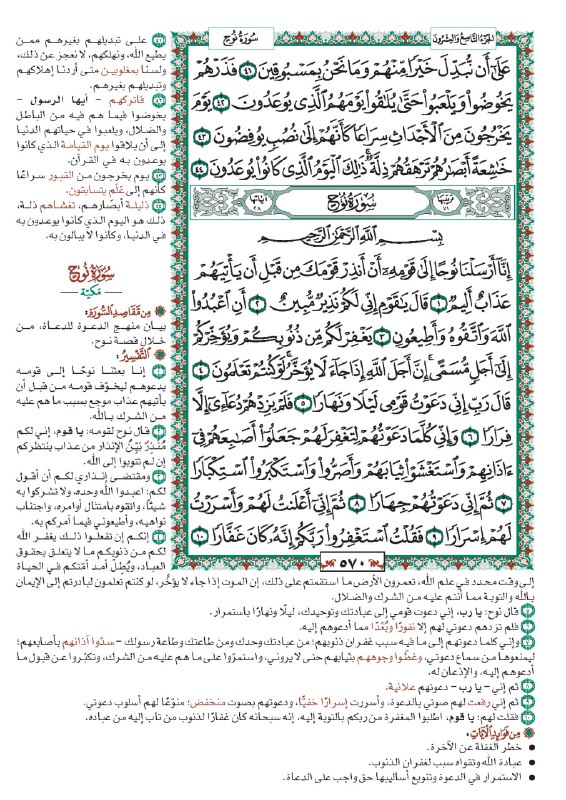 الجزء التاسع والعشرون
سورة نوح
عَلَىٰٓ أَن نُّبَدِّلَ خَيْرًا مِّنْهُمْ وَمَا نَحْنُ بِمَسْبُوقِينَ ٤١ فَذَرْهُمْ
يَخُوضُوا۟ وَيَلْعَبُوا۟ حَتَّىٰ يُلَٰقُوا۟ يَوْمَهُمُ ٱلَّذِى يُوعَدُونَ ٤٢ يَوْمَ
يَخْرُجُونَ مِنَ ٱلْأَجْدَاثِ سِرَاعًا كَأَنَّهُمْ إِلَىٰ نُصُبٍ يُوفِضُونَ ٤٣
خَٰشِعَةً أَبْصَٰرُهُمْ تَرْهَقُهُمْ ذِلَّةٌ ذَٰلِكَ ٱلْيَوْمُ ٱلَّذِى كَانُوا۟ يُوعَدُونَ ٤٤
ترتيبها ٧١ سُورَةُ نُوحٍ آياتها ٢٨
بِسْمِ ٱللَّهِ ٱلرَّحْمَٰنِ ٱلرَّحِيمِ
إِنَّآ أَرْسَلْنَا نُوحًا إِلَىٰ قَوْمِهِۦٓ أَنْ أَنذِرْ قَوْمَكَ مِن قَبْلِ أَن يَأْتِيَهُمْ
عَذَابٌ أَلِيمٌ ١ قَالَ يَٰقَوْمِ إِنِّى لَكُمْ نَذِيرٌ مُّبِينٌ ٢ أَنِ ٱعْبُدُوا۟
ٱللَّهَ وَٱتَّقُوهُ وَأَطِيعُونِ ٣ يَغْفِرْ لَكُم مِّن ذُنُوبِكُمْ وَيُؤَخِّرْكُمْ
إِلَىٰٓ أَجَلٍ مُّسَمًّى إِنَّ أَجَلَ ٱللَّهِ إِذَا جَآءَ لَا يُؤَخَّرُ لَوْ كُنتُمْ تَعْلَمُونَ ٤
قَالَ رَبِّ إِنِّى دَعَوْتُ قَوْمِى لَيْلًا وَنَهَارًا ٥ فَلَمْ يَزِدْهُمْ دُعَآءِىٓ إِلَّا
فِرَارًا ٦ وَإِنِّى كُلَّمَا دَعَوْتُهُمْ لِتَغْفِرَ لَهُمْ جَعَلُوٓا۟ أَصَٰبِعَهُمْ فِىٓ
ءَاذَانِهِمْ وَٱسْتَغْشَوْا۟ ثِيَابَهُمْ وَأَصَرُّوا۟ وَٱسْتَكْبَرُوا۟ ٱسْتِكْبَارًا
٧ ثُمَّ إِنِّى دَعَوْتُهُمْ جِهَارًا ٨ ثُمَّ إِنِّىٓ أَعْلَنتُ لَهُمْ وَأَسْرَرْتُ
لَهُمْ إِسْرَارًا ٩ فَقُلْتُ ٱسْتَغْفِرُوا۟ رَبَّكُمْ إِنَّهُۥ كَانَ غَفَّارًا ١٠
٥٧٠
٤١ على تبديلهم بغيرهم ممن
يطيع الله، ونهلكهم، لا نعجز عن ذلك،
ولسنا بمغلوبين متى أردنا إهلاكهم
وتبديلهم بغيرهم.
٤٢ فاتركهم - أيها الرسول -
يخوضوا فيما هم فيه من الباطل
والضلال، ويلعبوا في حياتهم الدنيا
إلى أن يلاقوا يوم القيامة الذي كانوا
يوعدون به في القرآن.
٤٣ يوم يخرجون من القبور سراعًا
كأنهم إلى عَلَم يتسابقون.
٤٤ ذليلة أبصارهم، تغشاهم ذلة،
ذلك هو اليوم الذي كانوا يوعدون به
في الدنيا، وكانوا لا يبالون به.
سُورَةُ نُوحٍ
مكية
من مقاصد السورة:
بيان منهج الدعوة للدعاة، من
خلال قصة نوح.
التفسير:
١ إنا بعثنا نوحًا إلى قومه
يدعوهم ليخوف قومه من قبل أن
يأتيهم عذاب موجع بسبب ما هم عليه
من الشرك بالله.
٢ قال نوح لقومه: يا قوم، إني لكم
مُنذِرٌ بَيِّن الإنذار من عذاب ينتظركم
إن لم تتوبوا إلى الله.
٣ ومقتضى إنذاري لكم أن أقول
لكم: اعبدوا الله وحده، ولا تشركوا به
شيئًا، واتقوه بامتثال أوامره، واجتناب
نواهيه، وأطيعوني فيما آمركم به.
٤ إنكم إن تفعلوا ذلك يغفر الله
لكم من ذنوبكم ما لا يتعلق بحقوق
العباد، ويُطِل أمد أمتكم في الحياة
إلى وقت محدد في علم الله، تعمرون الأرض ما استقمتم على ذلك، إن الموت إذا جاء لا يؤخَّر، لو كنتم تعلمون لبادرتم إلى الإيمان
بالله والتوبة مما أنتم عليه من الشرك والضلال.
٥ قال نوح: يا رب، إني دعوت قومي إلى عبادتك وتوحيدك، ليلًا ونهارًا باستمرار.
٦ فلم تزدهم دعوتي لهم إلا نفورًا وبُعْدًا مما أدعوهم إليه.
٧ وإني كلما دعوتهم إلى ما فيه سبب غفران ذنوبهم؛ من عبادتك وحدك ومن طاعتك وطاعة رسولك - سدّوا آذانهم بأصابعهم؛
ليمنعوها من سماع دعوتي، وغطّوا وجوههم بثيابهم حتى لا يروني، واستمرّوا على ما هم عليه من الشرك، وتكبّروا عن قبول ما
أدعوهم إليه، والإذعان له.
٨ ثم إني - يا رب - دعوتهم علانية.
٩ ثم إني رفعت لهم صوتي بالدعوة، وأسررت إسرارًا خفيًّا، ودعوتهم بصوت منخفض؛ منوّعًا لهم أسلوب دعوتي.
١٠ فقلت لهم: يا قوم، اطلبوا المغفرة من ربكم بالتوبة إليه، إنه سبحانه كان غفارًا لذنوب من تاب إليه من عباده.
من فوائد الآيات:
• خطر الغفلة عن الآخرة.
• عبادة الله وتقواه سبب لغفران الذنوب.
• الاستمرار في الدعوة وتنويع أساليبها حق واجب على الدعاة.